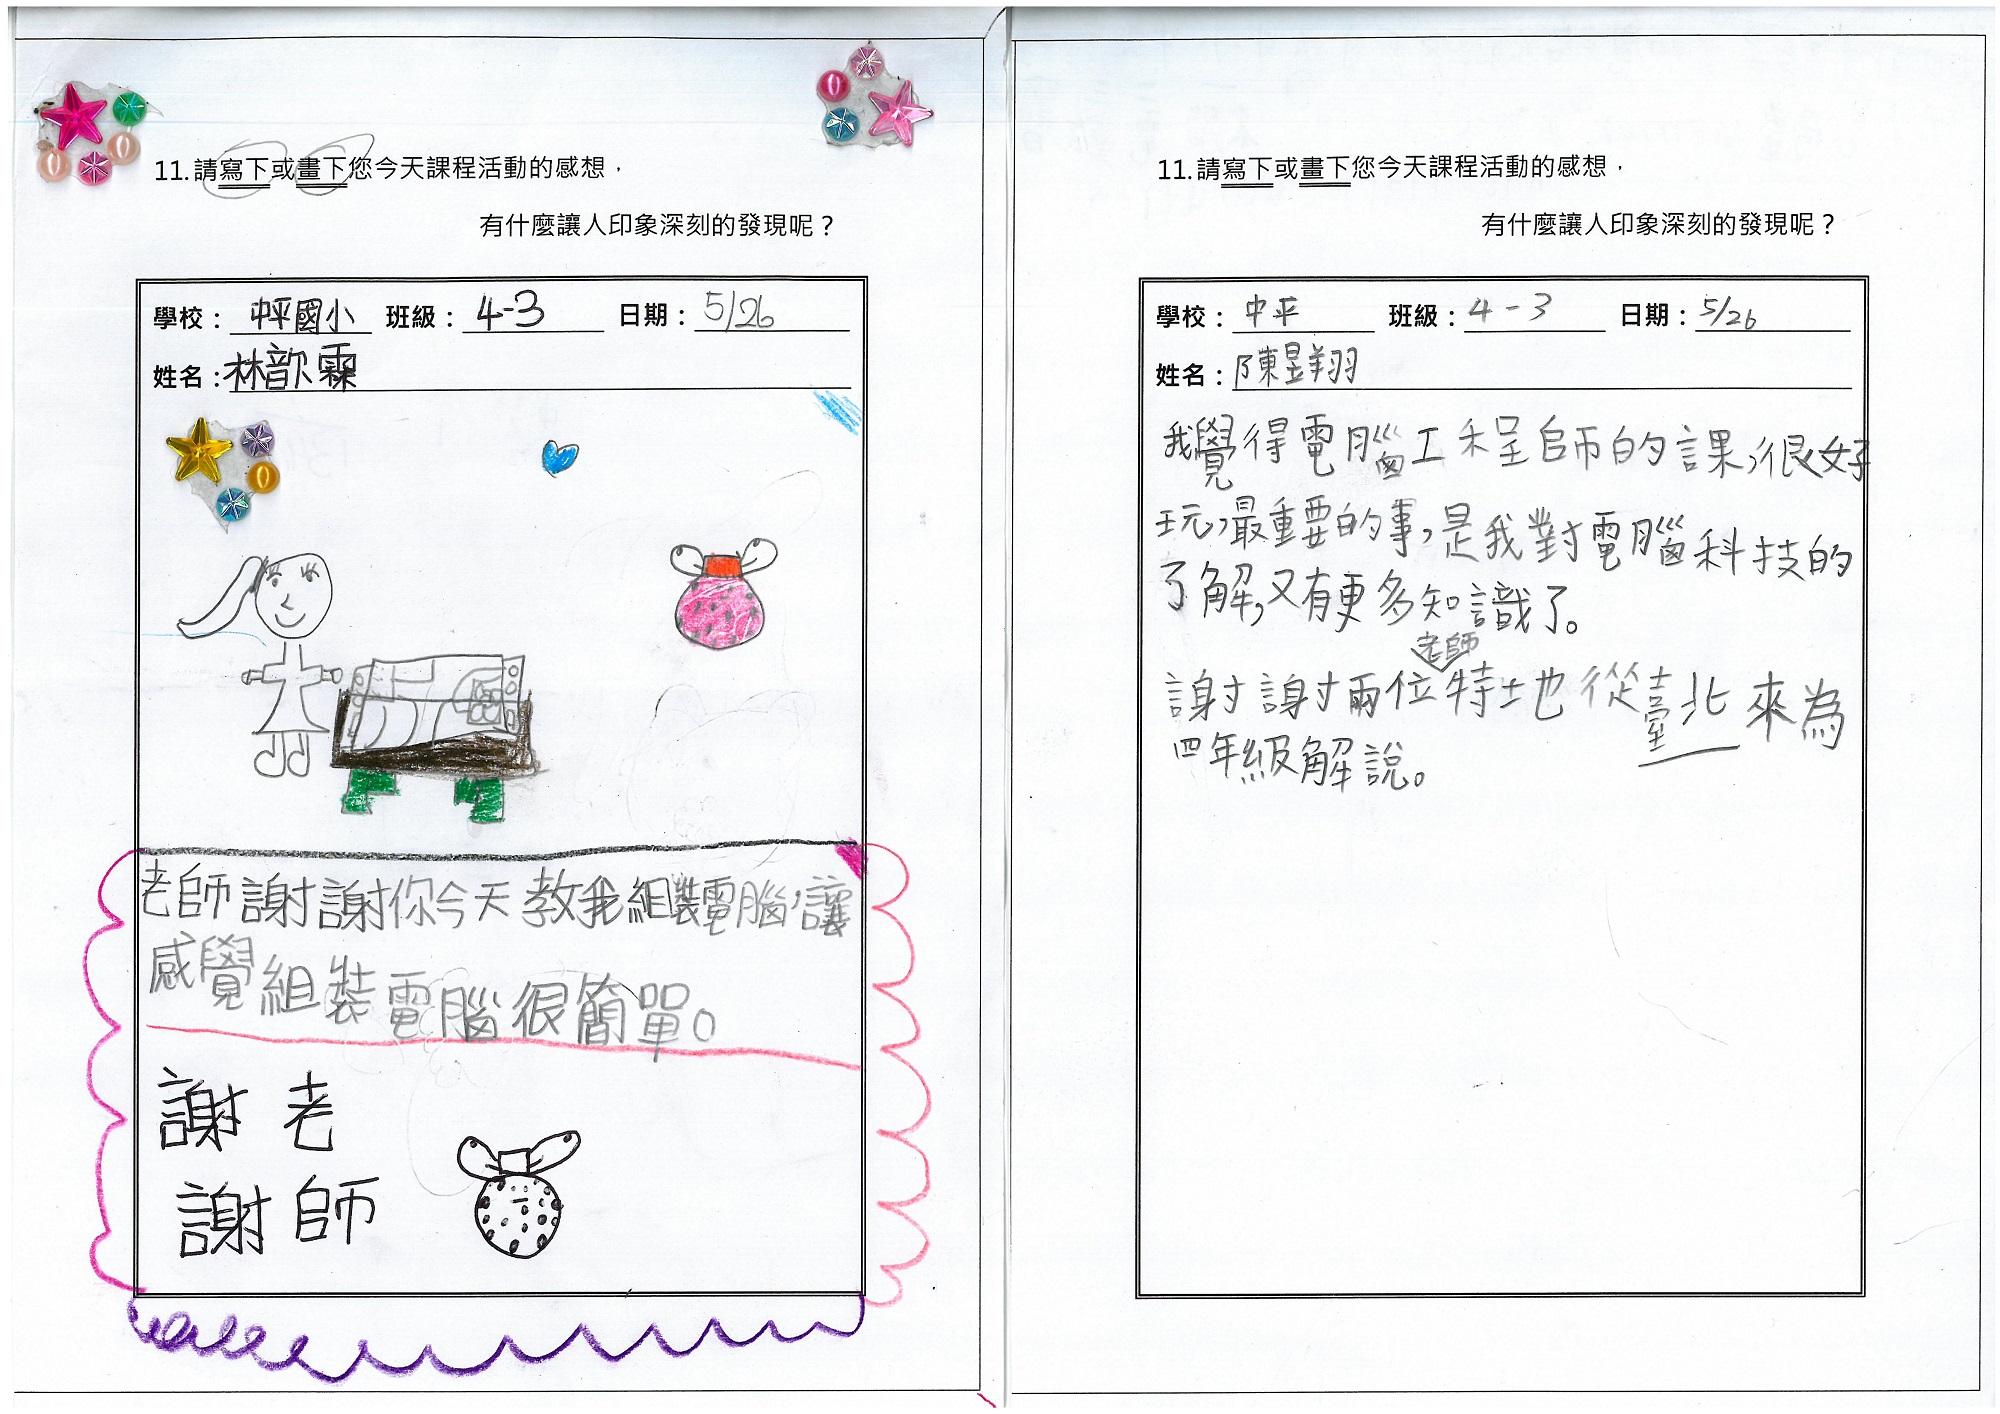 11.請寫下或畫下您今天課程活動的感想，
有什麼讓人印象深刻的發現呢？
學校：中平國小 班級：4-3 日期：5/26
姓名：林歆霖
老師謝謝你今天教我組裝電腦，讓
感覺組裝電腦很簡單。
謝老
謝師
11.請寫下或畫下您今天課程活動的感想，
有什麼讓人印象深刻的發現呢？
學校：中平 班級：4-3 日期：5/26
姓名：陳昱翔
我覺得電腦工程師的課，很好
玩，最重要的事，是我對電腦科技的
了解，又有更多知識了。
老師
謝謝兩位特地從臺北來為
四年級解說。